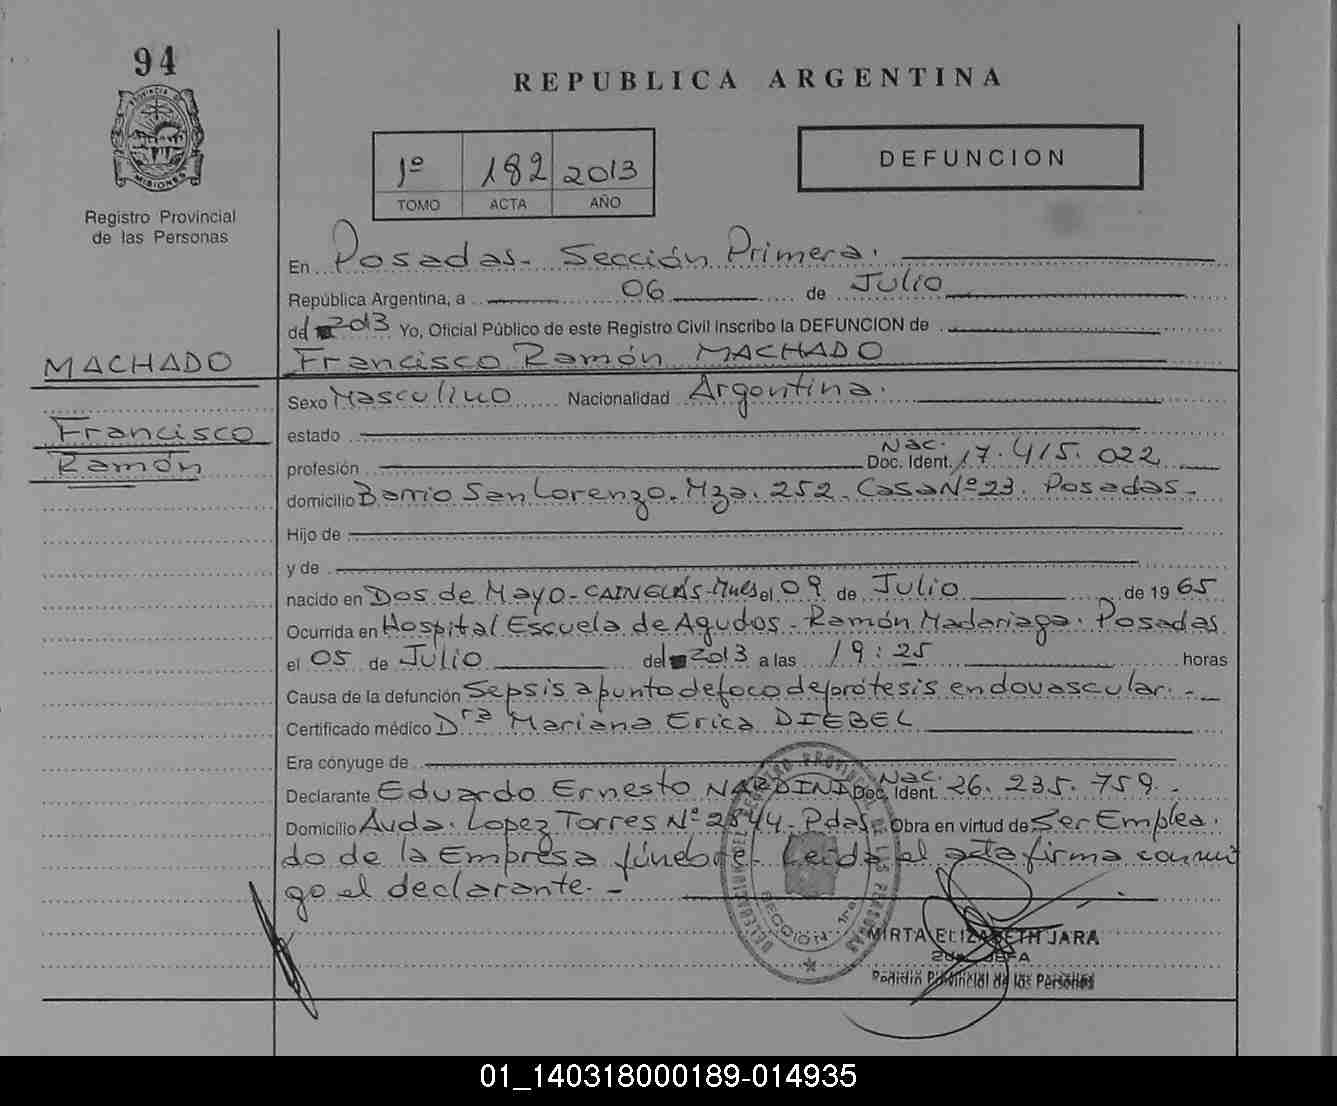 94
PROVINCIA DE
MISIONES
Registro Provincial
de las Personas
REPUBLICA ARGENTINA
1º 182 2013
TOMO ACTA AÑO
DEFUNCION
En Posadas- Sección Primera.
República Argentina, a 06 de Julio
del 2013 Yo, Oficial Público de este Registro Civil Inscribo la DEFUNCION de
MACHADO
Francisco Ramón MACHADO
Sexo Masculino Nacionalidad Argentina.
Francisco
Ramón
estado
profesión Nac. Doc. Ident. 17.415.022
domicilio Barrio San Lorenzo. Mza. 252. Casa Nº 23. Posadas-
Hijo de
y de
nacido en Dos de Mayo- CAINGUÁS- Mnes el 09 de Julio de 1965
Ocurrida en Hospital Escuela de Agudos- Ramón Madariaga. Posadas
el 05 de Julio del 2013 a las 19:25 horas
Causa de la defunción Sepsis a punto de foco de prótesis endovascular.-
Certificado médico Drª Mariana Erica DIEBEL
Era cónyuge de
Declarante Eduardo Ernesto NARDINI Nac. Doc. Ident. 26.235.759.
Domicilio Avda. Lopez Torres Nº 2844- Pdas. Obra en virtud de Ser Emplea.
do de la Empresa fúnebre- Leida el acta firma conmi
go el declarante.-
DELEGACION DEL REGISTRO PROVINCIAL DE LAS PERSONAS
SECCION 1ra
MIRTA ELIZABETH JARA
Provincial de las Personas
01_140318000189-014935